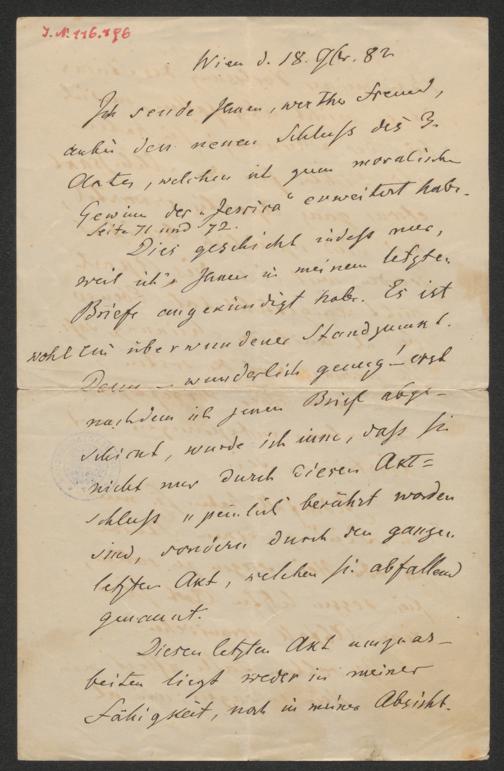 J. N. 116.796
Wien d. 18. 82
Ich sende Ihnen, werther Freund,
anbei den neuen Schluß des 3.
Actes, welchen ich zum moralischen
Gewinn der „Jessica" erweitert habe.
Seite 71 und 72.
Dies geschieht indeß nur,
weil ich's Ihnen in meinem letzten
Briefe angekündigt habe. Es ist
wohl ein überwundener Standpunkt.
Denn – wunderlich genug! – erst
nachdem ich jenen Brief abge-
schickt, wurde ich inne, daß Sie
nicht nur durch diesen Akt=
schluß „peinlich" berührt worden
sind, sondern durch den ganzen
letzten Akt, welchen Sie abfallend
genannt.
Diesen letzten Akt umzuar-
beiten liegt weder in meiner
Fähigkeit, noch in meiner Absicht.